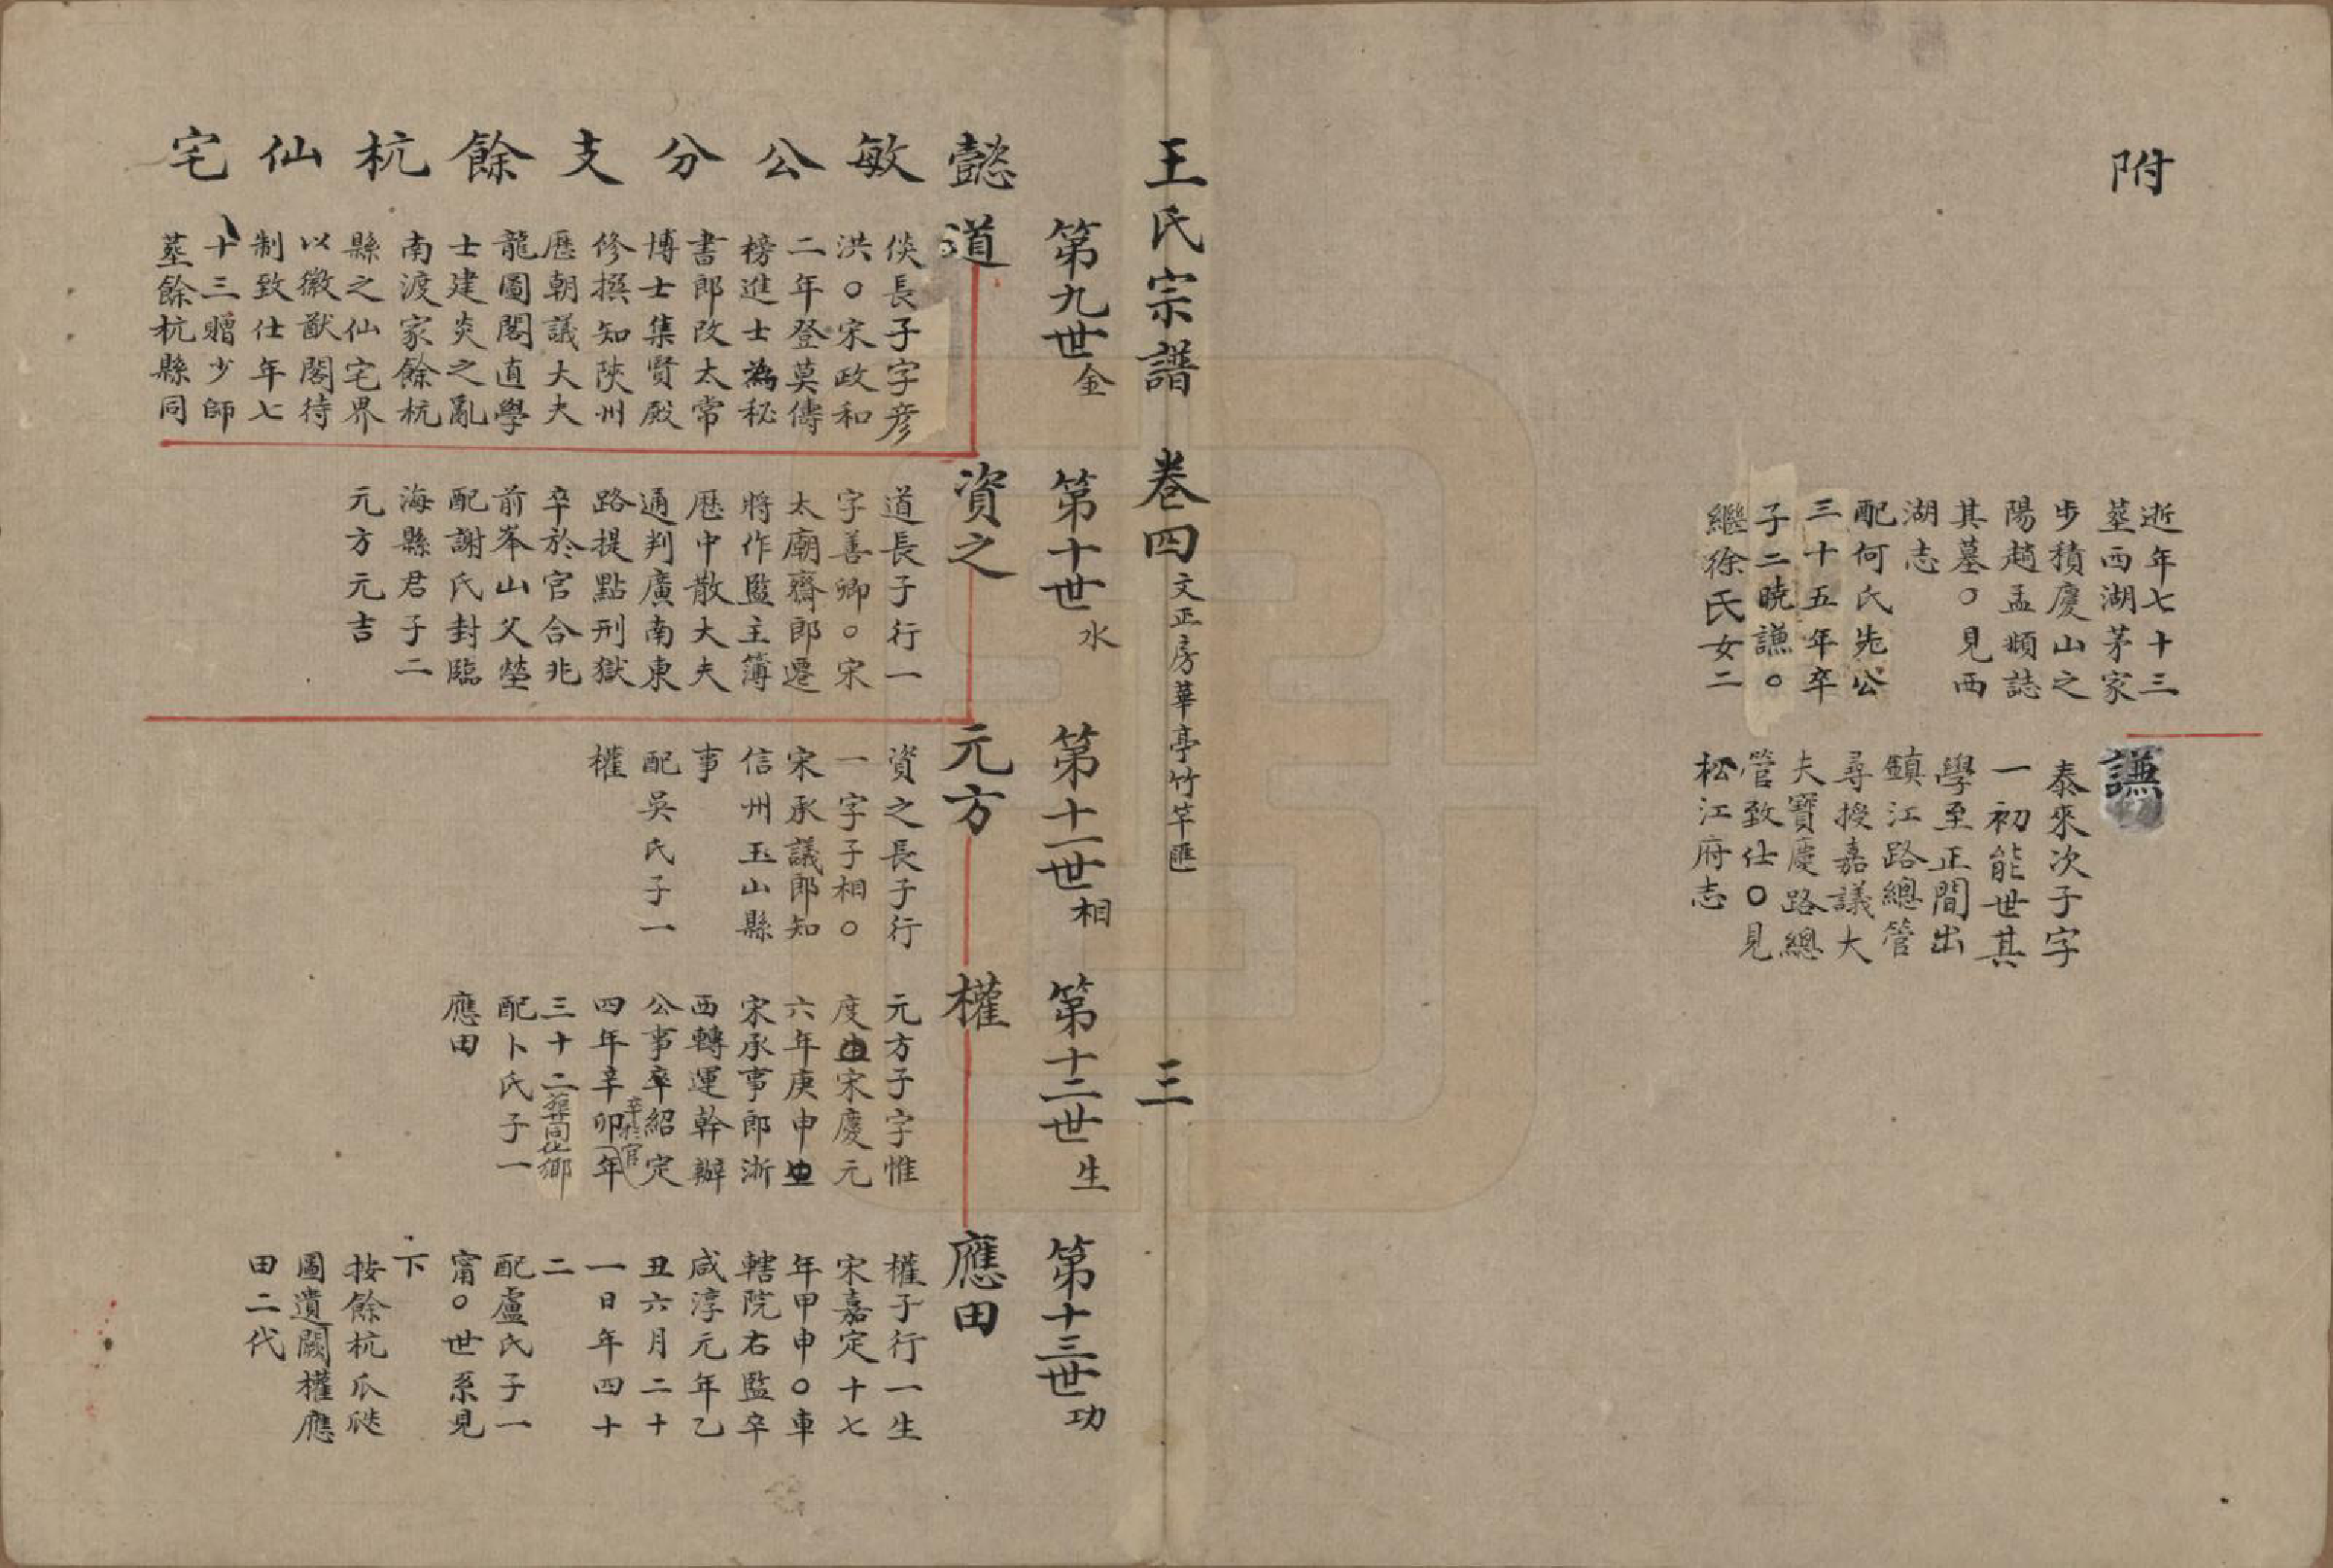 附
逝年七十三
塟西湖茅家
步積慶山之
陽趙孟頫誌
其墓○見西
湖志
配何氏先公
三十五年卒
子二曉謙○
繼徐氏女二
謙
泰來次子字
一初能世其
學至正間出
鎮江路總管
尋授嘉議大
夫寶慶路總
管致仕○見
松江府志
王氏宗譜 卷四 文正房華亭竹竿匯 三
第九世金
第十世水
第十一世相
第十二世生
第十三世功
懿敏公分支餘杭仙宅
道
倓長子字彦
洪○宋政和
二年登莫儔
榜進士為秘
書郎改太常
博士集賢殿
修撰知陝州
歷朝議大夫
龍圖閣直學
士建炎之亂
南渡家餘杭
縣之仙宅界
以徽猷閣待
制致仕年七
十三贈少師
塟餘杭縣同
資之
道長子行一
字善卿○宋
太廟齋郎遷
將作監主簿
歷中散大夫
通判廣南東
路提點刑獄
卒於官合兆
前峯山父塋
配謝氏封臨
海縣君子二
元方元吉
元方
資之長子行
一字子相○
宋承議郎知
信州玉山縣
事
配吳氏子一
權
權
元方子字惟
度生宋慶元
六年庚申
宋承事郎浙
西轉運幹辦
公事卒紹定
四年辛卯年
卒於官
三十二葬同仙鄉
配卜氏子一
應田
應田
權子行一生
宋嘉定十七
年甲申○車
轄院右監卒
咸淳元年乙
丑六月二十
一日年四十
二
配盧氏子一
甯○世系見
下
按餘杭瓜瓞
圖遺闕權應
田二代